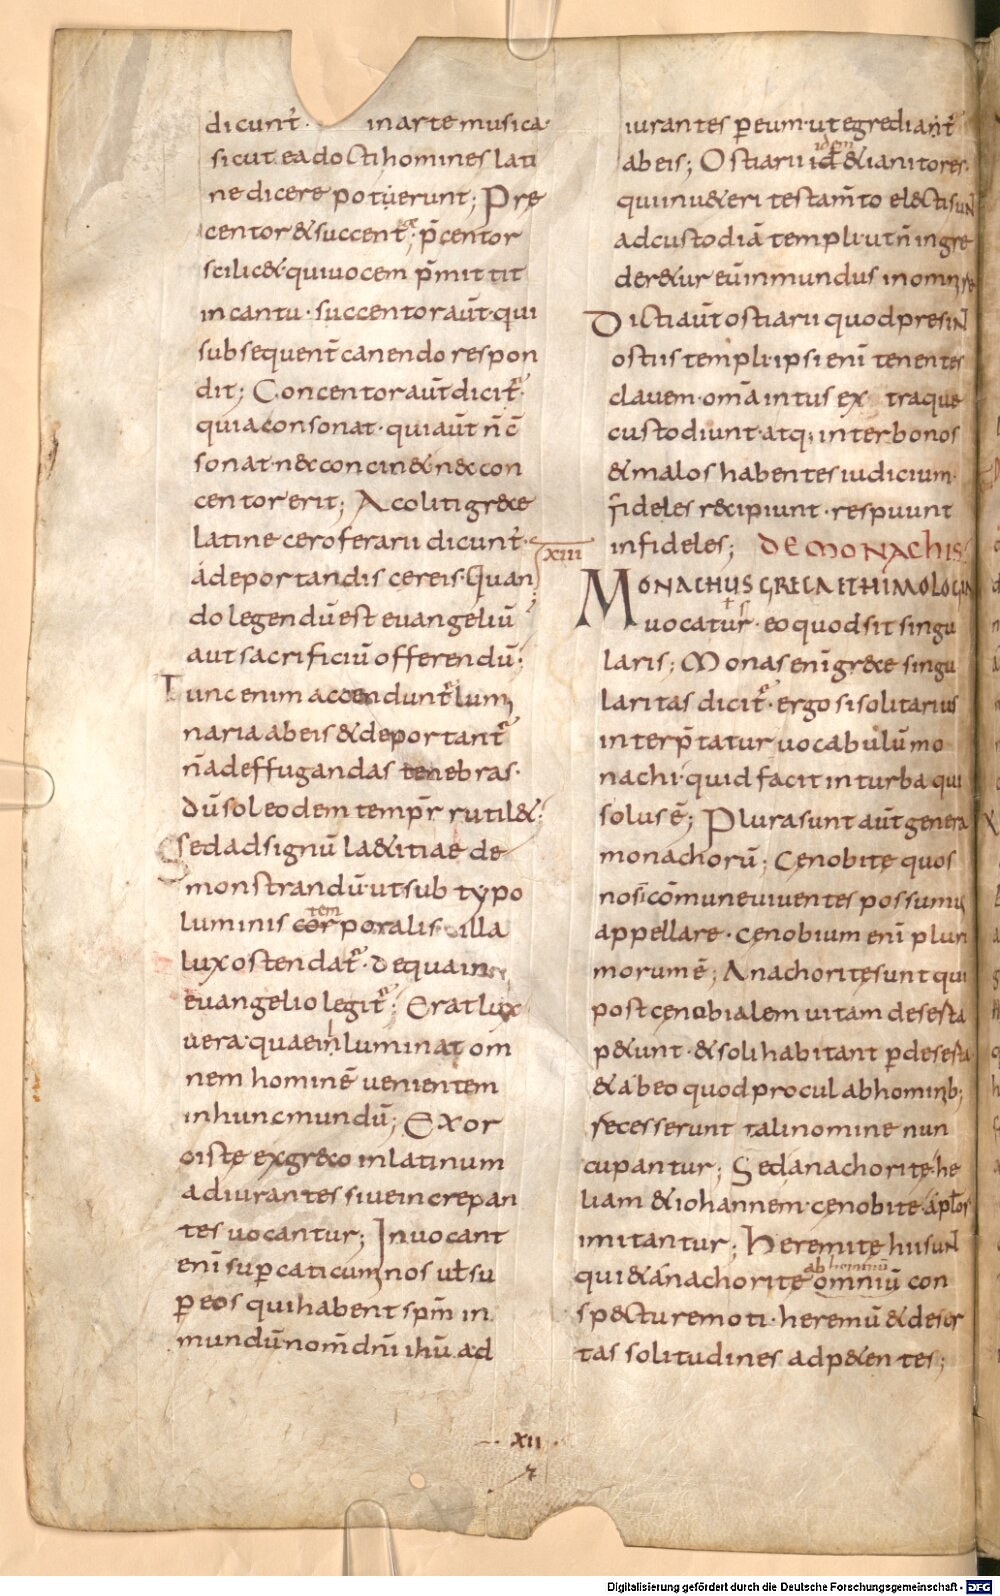 dicunt̄ · in arte musica·
sicut ea docti homines lati
ne dicere potuerunt; Pre
centor & succent̄· p̄centor
scilic& qui uocem p̄mittit
in cantu· succentor aūt qui
subsequent̄ canendo respon
dit; Concentor aūt dicit̄·
quia consonat· qui aūt n̄ c̄
sonat nec concin& nec con
centor erit; Acoliti grece
latine ceroferarii dicunt̄·
a deportandis cereis· Quan
do legendū est evangeliū
aut sacrificiū offerendū·
Tunc enim accenduntr̄ lumi
naria ab eis & deportant̄
n̄ ad effugandas tenebras·
dū sol eodem temp̄r rutil&·
Sed ad signū l&itiae de
monstrandū· ut sub typo
luminis corporalis illa
tem
lux ostendat̄· de qua in
evangelio legit̄· Erat lux
uera quae inluminat om
nem hominē uenientem
in hunc mundū; Exor
ciste ex greco in latinum
adiurantes siue increpan
tes uocantur; Inuocant
enī sup caticuminos ut̄ su
per eos qui habent spm̄ in
mundū nom̄ dn̄i ihū ad
iurantes p eum· ut egrediant̄
idem
ab eis; Ostiarii id & ianitores·
qui in u&eri testam̄to electi sunt
ad custodiā templi· ut n̄ ingre
der&ur eū inmundus in omni re
Dicti aūt ostiarii quod presint
ostiis templi· ipsi enī tenentes
clauem· om̄a intus ex traque
custodiunt· atq; inter bonos
& malos habentes iudicium·
fideles recipiunt· respuunt
infideles; DE MONACHIS
XIII
MONACHUS GRECA ETHIMOLOGIA
uocatur· eo quod sit singu
laris; Monas enī grece singu
laritas dicit̄· ergo si solitarius
interp̄tatur uocabulū mo
nachi· quid facit in turba qui
solus ē; Plura sunt aūt genera
monachorū; Cenobite quos
nos in cōmune uiuentes possumus
appellare· cenobium enī pluri
morum ē; Anachorite sunt qui
post cenobialem uitam deserta
p&unt· & soli habitant p deserta
& ab eo quod procul ab hominib;
recesserunt tali nomine nun
cupantur; Sed anachorite he
liam & iohannem· cenobite ap̄los
imitantur; Heremite hii sunt
ab hominū
qui & anachorite omniū con
spectu remoti· heremū & deser
tas solitudines adp&entes;
XII